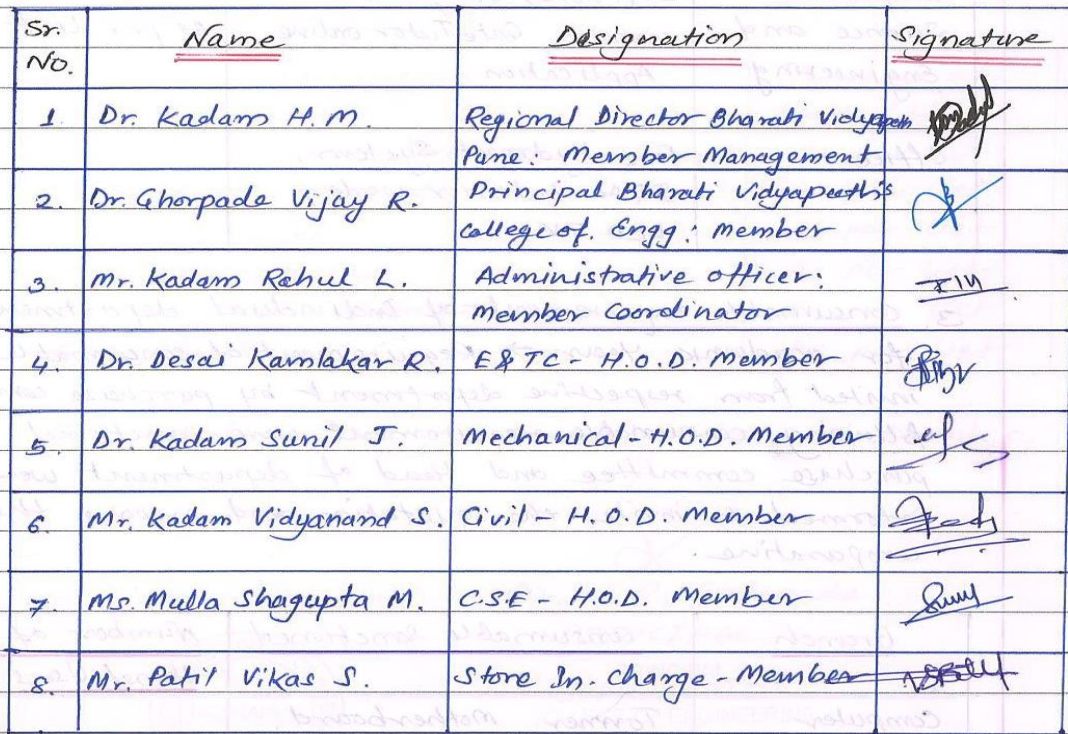 Sr. No. Name Designation Signature
1. Dr. Kadam H.M. Regional Director Bharati Vidyapeeth
Pune: Member Management
2. Dr. Ghorpade Vijay R. Principal Bharati Vidyapeeth's
college of. Engg: member
3. Mr. Kadam Rahul L. Administrative officer:
Member Coordinator
4. Dr. Desai Kamlakar R. E & TC - H.O.D. Member
5. Dr. Kadam Sunil J. Mechanical - H.O.D. Member
6. Mr. Kadam Vidyanand S. Civil - H.O.D. Member
7. Ms. Mulla Shagupta M. C.S.E - H.O.D. Member
8. Mr. Patil Vikas S. Store In. Charge - Member